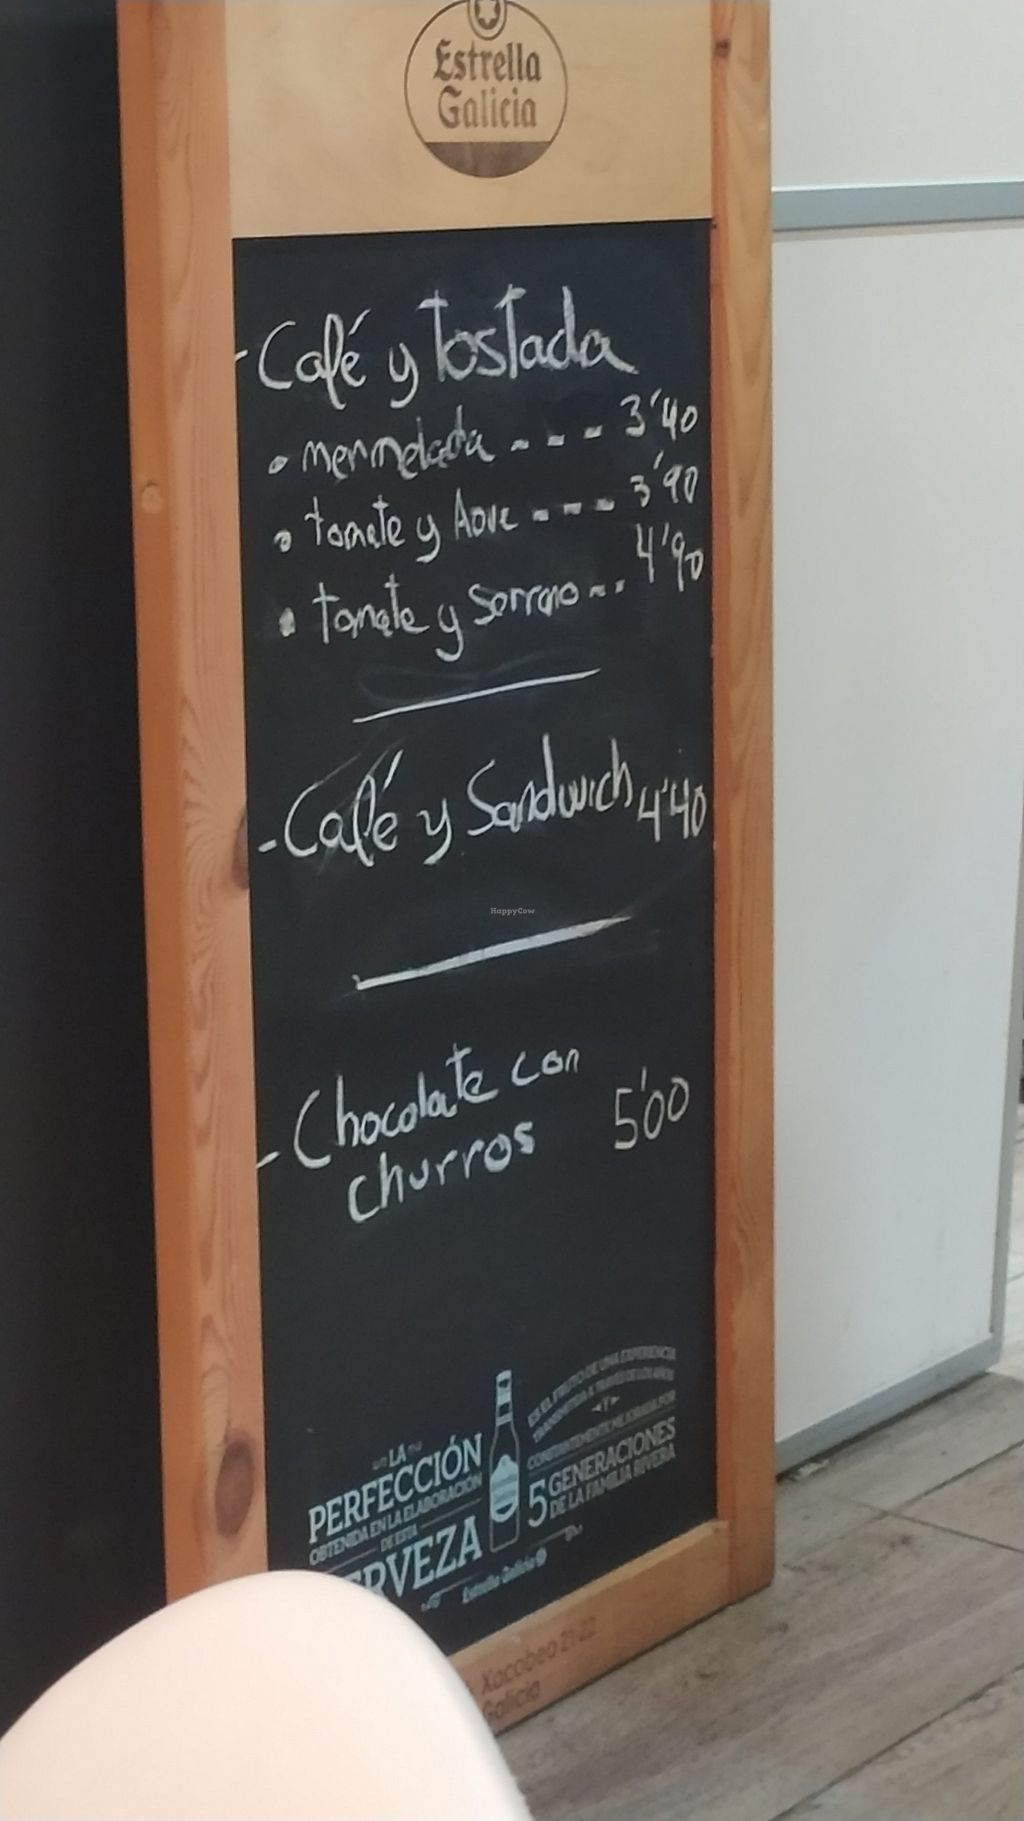 Estrella
Galicia
- Café y Tostada
• mermelada - - - 3'40
• tomate y Aove - - - - 3'90
• tomate y Serrano - - 4'90
- Café y Sandwich 4'40
HappyCow
- Chocolate con
churros 5'00
LA
PERFECCIÓN
OBTENIDA EN LA ELABORACIÓN
DE ESTA
ERVEZA
Estrella Galicia
ES EL FRUTO DE UNA EXPERIENCIA
TRANSMITIDA A TRAVÉS DE LOS AÑOS
Y
CONSTANTEMENTE MEJORADA POR
5 GENERACIONES
DE LA FAMILIA RIVERA
Xacobeo 21·22
Galicia